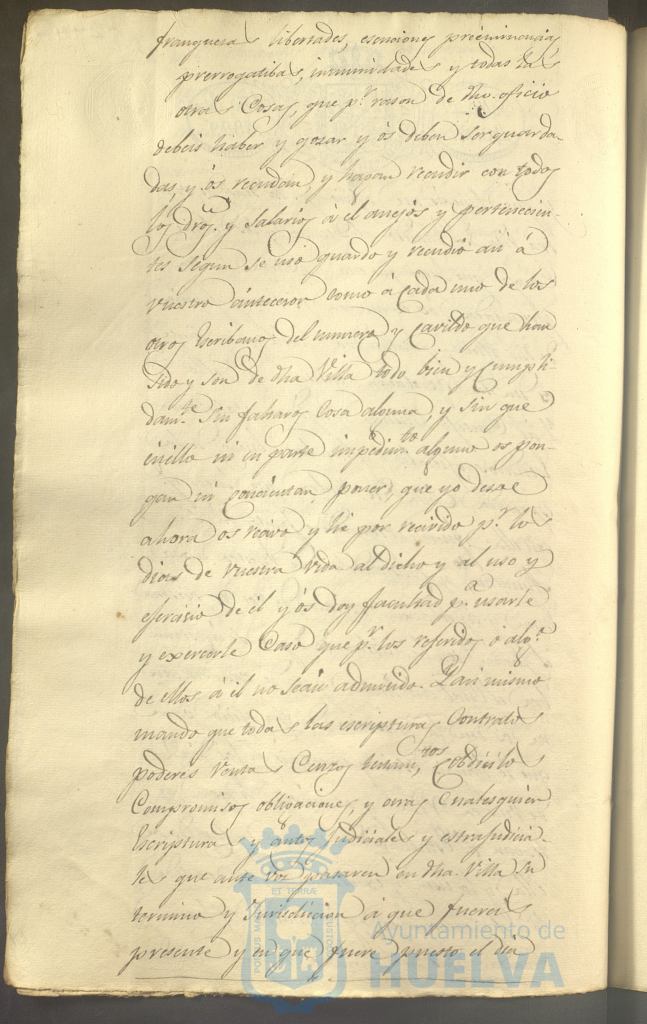 franquezas libertades, esenciones preeminencias
prerrogatibas, inmunidades y todas las
otras Cosas, que pr. razon de dho. oficio
debeis haber y gozar y ós deben ser guarda-
das, y ós recudan, y hagan recudir con todos
los dros. y Salarios á él anejos y pertenecien-
tes segun se usó guardo y recudió asi á
vuestro ántecesor como á Cada uno de los
otros Escribanos del numero y Cavildo que han
sido y son de dha Villa todo bien y Cumpli-
damte. sin faltaros Cosa alguna, y sin que
én ello ni en parte impedimto. alguno os pon-
gan ni Consientan poner, que yo desde
ahora os recivo y hé por recivido pr. los
dias de vuestra vida al dicho y al uso y
ejercicio de él y ós doy facultad pa. usarle
y exercerle Caso que pr. los referidos ó algo.
de ellos á él no seais admitido. Y asi mismo
mando que todas las escripturas Contratos
poderes Ventas Censos testamtos, Cobdicilos
Compromisos obligaciones, y otras Cualesquier
Escripturas y autos Judiciales y estrajudicia-
les que ante vos pasaren en dha. Villa su
termino y Jurisdiccion á que fuereis
presente y en que fuere puesto el dia
ET TERRÆ
CUSTOS
Ayuntamiento de
HUELVA